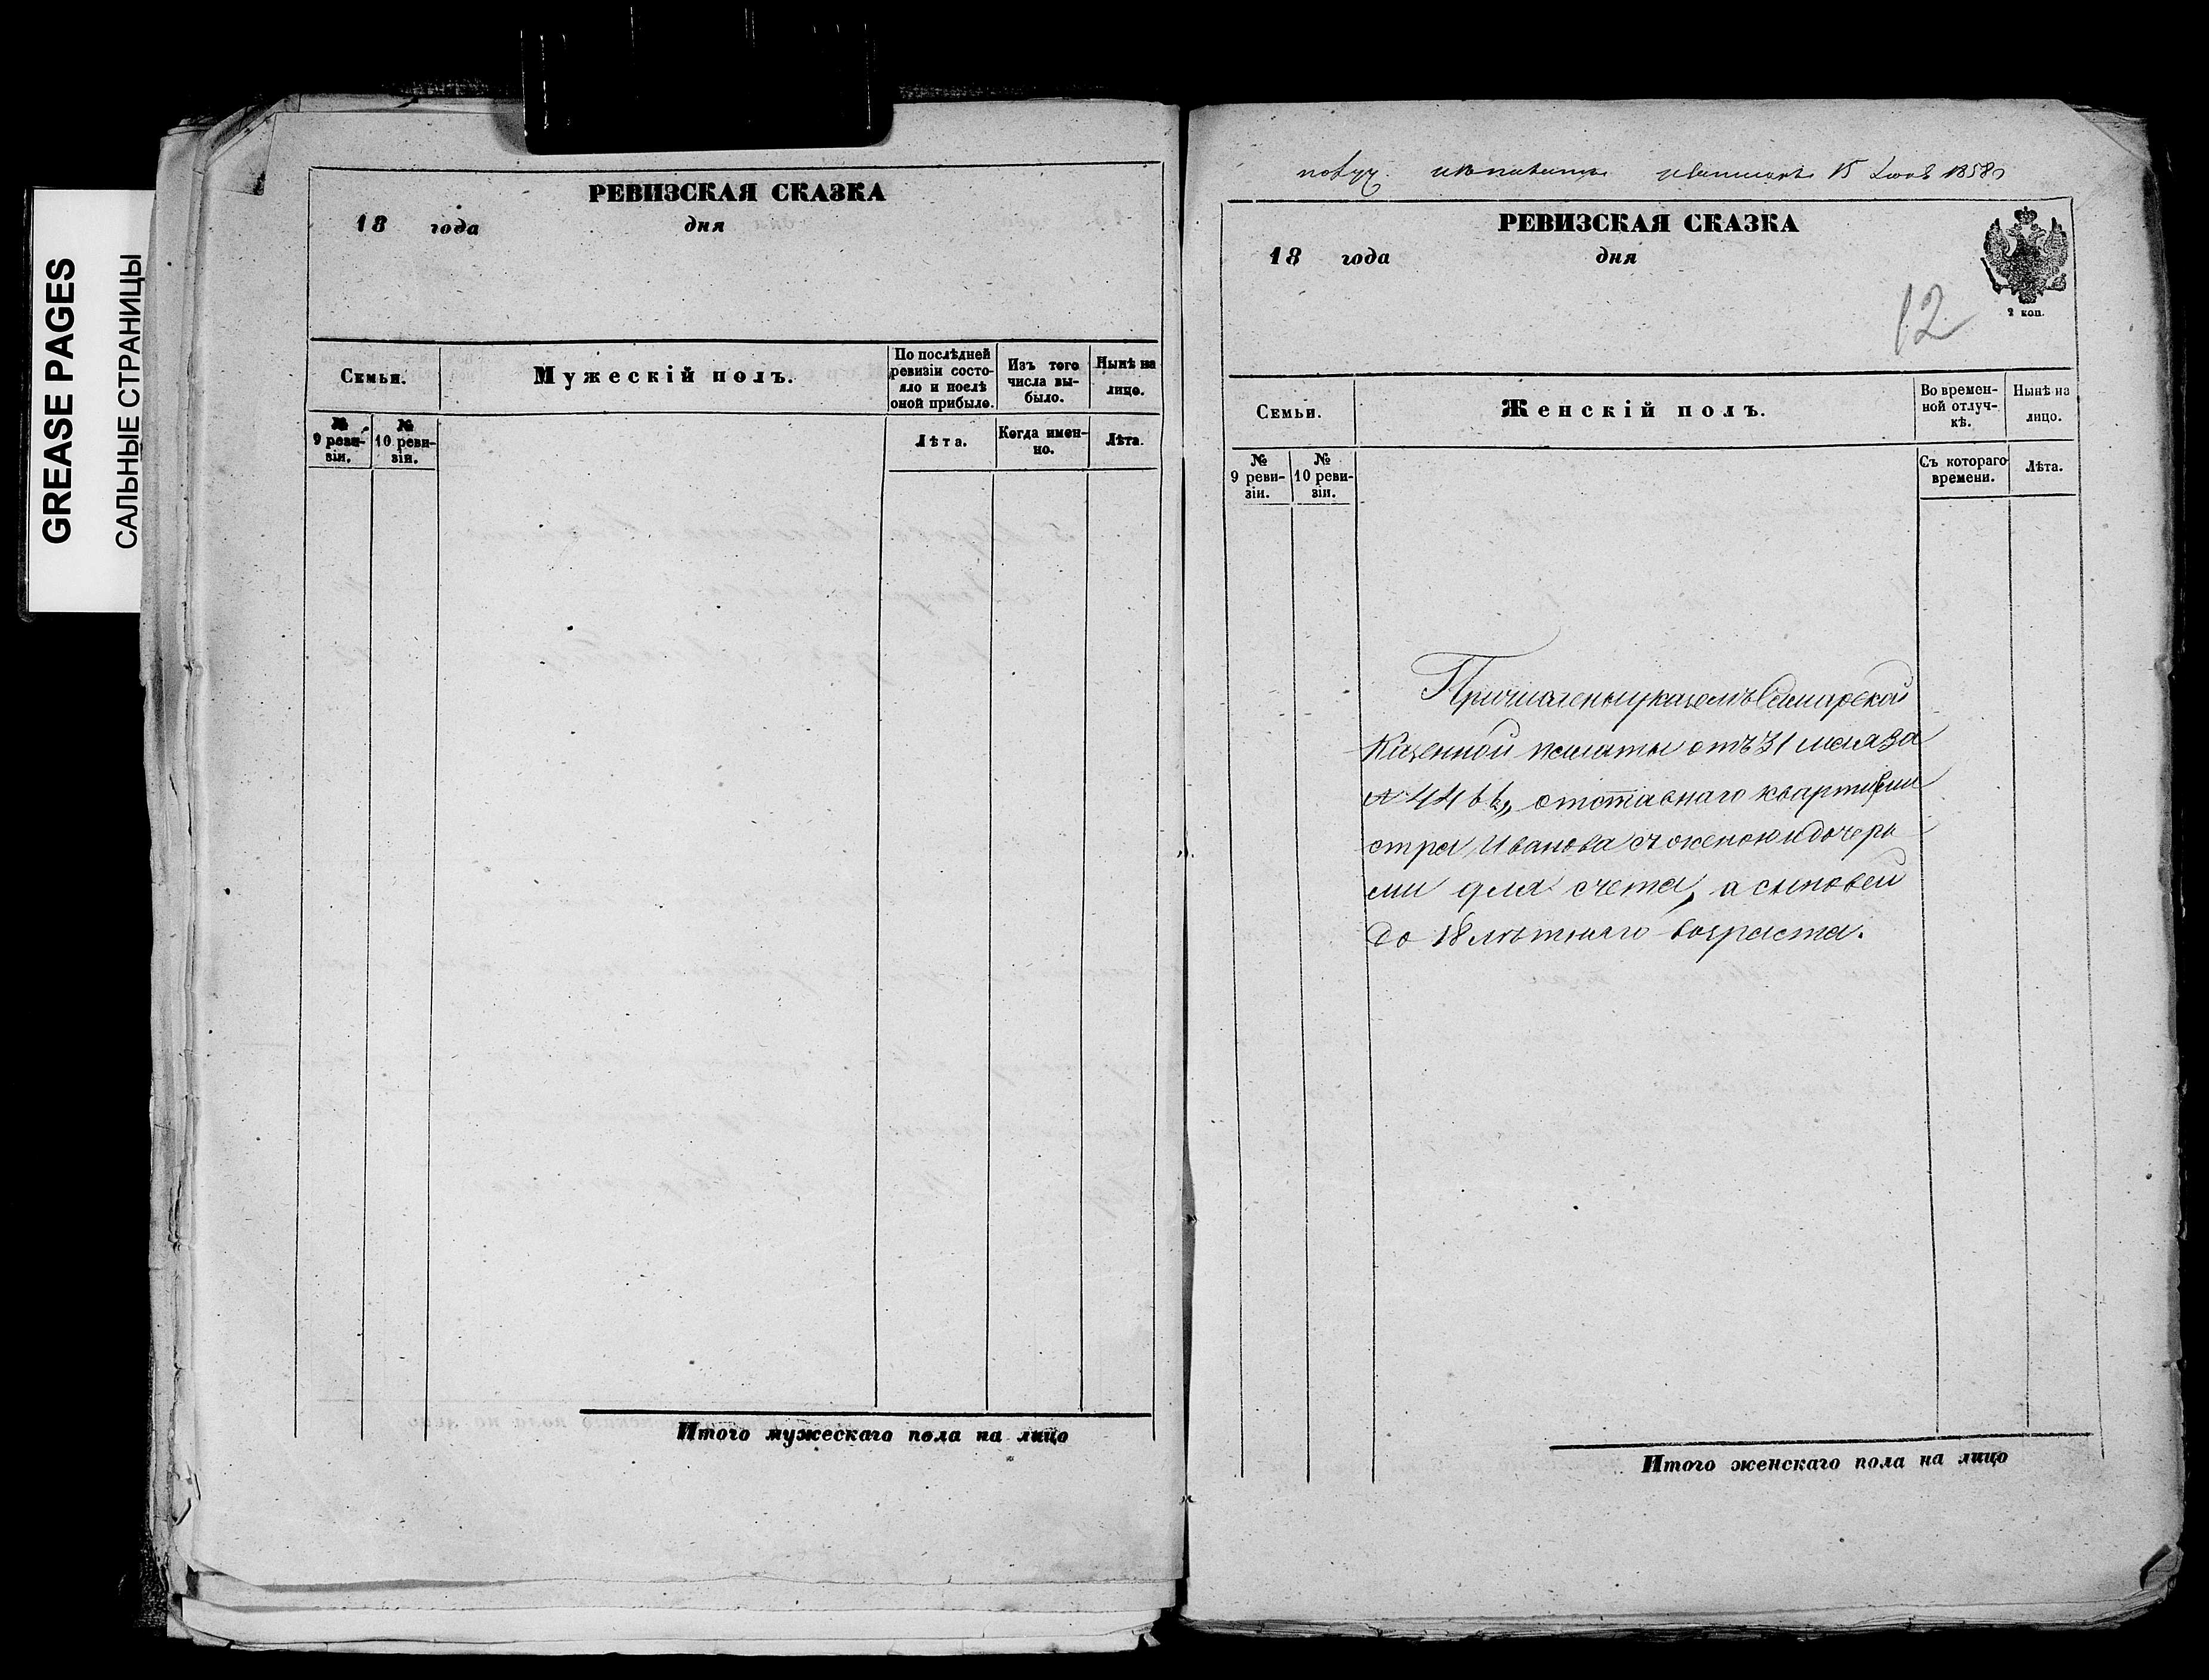 GREASE PAGES
САЛЬНЫЕ СТРАНИЦЫ
РЕВИЗСКАЯ СКАЗКА
18 года дня
Семьи.
Мужескій полъ.
По послѣдней ревизіи состояло и послѣ оной прибыло.
Изъ того числа выбыло.
Нынѣ на лицо.
№ 9 ревизіи.
№ 10 ревизіи.
Лѣта.
Когда именно.
Лѣта.
Итого мужескаго пола на лицо
15 1858
РЕВИЗСКАЯ СКАЗКА
18 года дня
2 коп.
12
Семьи.
Женскій полъ.
Во временной отлучкѣ.
Нынѣ на лицо.
№ 9 ревизіи.
№ 10 ревизіи.
Съ котораго времени.
Лѣта.
Причислены указомъ Самарской
Казенной палаты отъ 31 мая за
№ 4466, отставнаго квартирми
стра Иванова съ женою и дочерь
ми для счета, а сыновей
до 18 лѣтняго возраста.
Итого женскаго пола на лицо